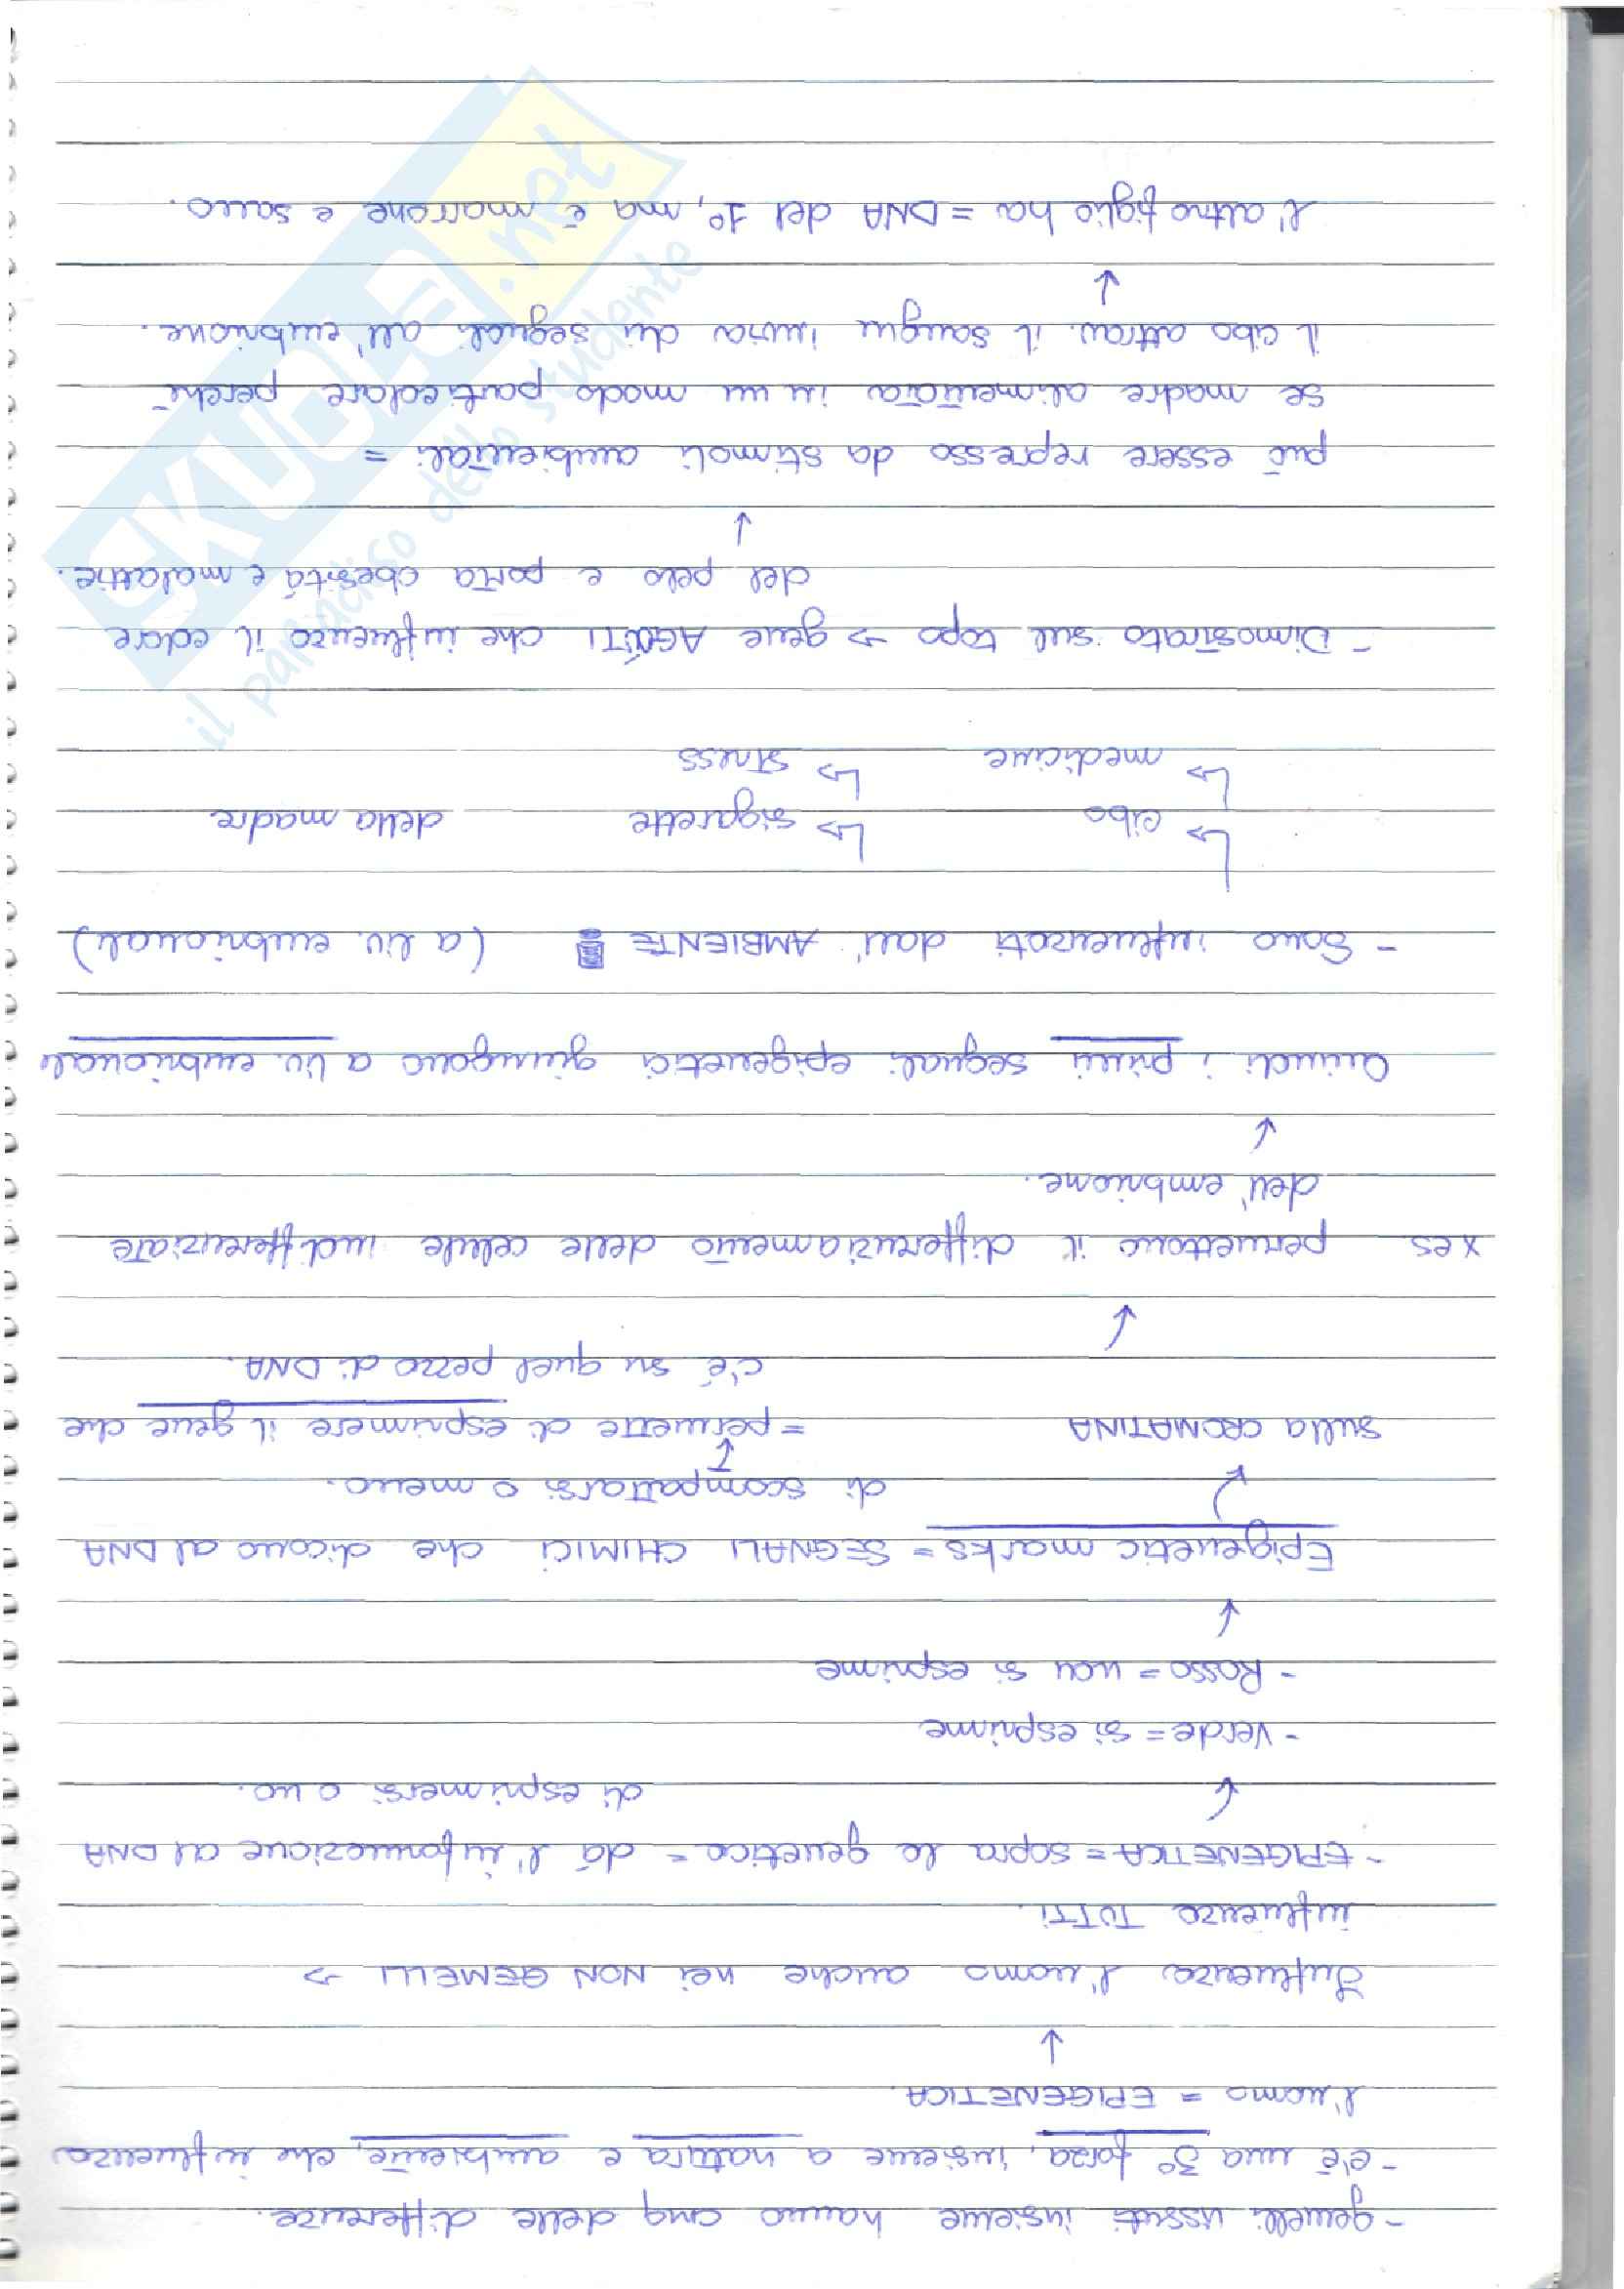 - gemelli vissuti insieme hanno cmq delle differenze.
- c'è una 3° forza, insieme a natura e ambiente, che influenza
l'uomo = EPIGENETICA
↓
Influenza l'uomo anche nei NON GEMELLI →
influenza TUTTI.
- EPIGENETICA = sopra la genetica = dà l'informazione al DNA
di esprimersi o no.
- Verde = si esprime
- Rosso = non si esprime
↓
Epigenetic marks = SEGNALI CHIMICI che dicono al DNA
di scompattarsi o meno.
sulla CROMATINA = permette di esprimere il gene che
c'è su quel pezzo di DNA.
↓
x es permettono il differenziamento delle cellule indifferenziate
dell'embrione.
↓
Quindi i primi segnali epigenetici giungono a liv. embrionale
- Sono influenzati dall'AMBIENTE (a liv. embrionale)
↳ cibo ↳ sigarette della madre
↳ medicine ↳ stress
- Dimostrato sul topo → gene AGUTI che influenza il colore
del pelo e porta obesità e malattie.
↓
può essere represso da stimoli ambientali =
se madre alimentata in un modo particolare perchè
il cibo attrav. il sangue invia dei segnali all'embrione.
↓
L'altro figlio ha = DNA del 1°, ma è marrone e sano.
SKUOLA.net
il paradiso dello studente